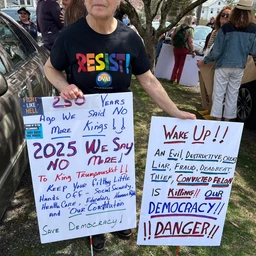 RESIST!
FIGHT
LIKE
HELL
250 YEARS
Ago WE SAID NO
MORE KINGS!!
2025 WE SAY
NO MORE!
TO KING TRUMPANUS!!!
KEEP YOUR FILTHY LITTLE
HANDS OFF - SOCIAL SECURITY,
HEALTH CARE, EDUCATION, HUMAN RIGHTS
AND OUR CONSTITUTION
SAVE DEMOCRACY!
WAKE UP!!
AN EVIL, DESTRUCTIVE,
LIAR, FRAUD, DEADBEAT
THIEF, CONVICTED FELON
IS KILLING!! OUR
DEMOCRACY!!
!!DANGER!!